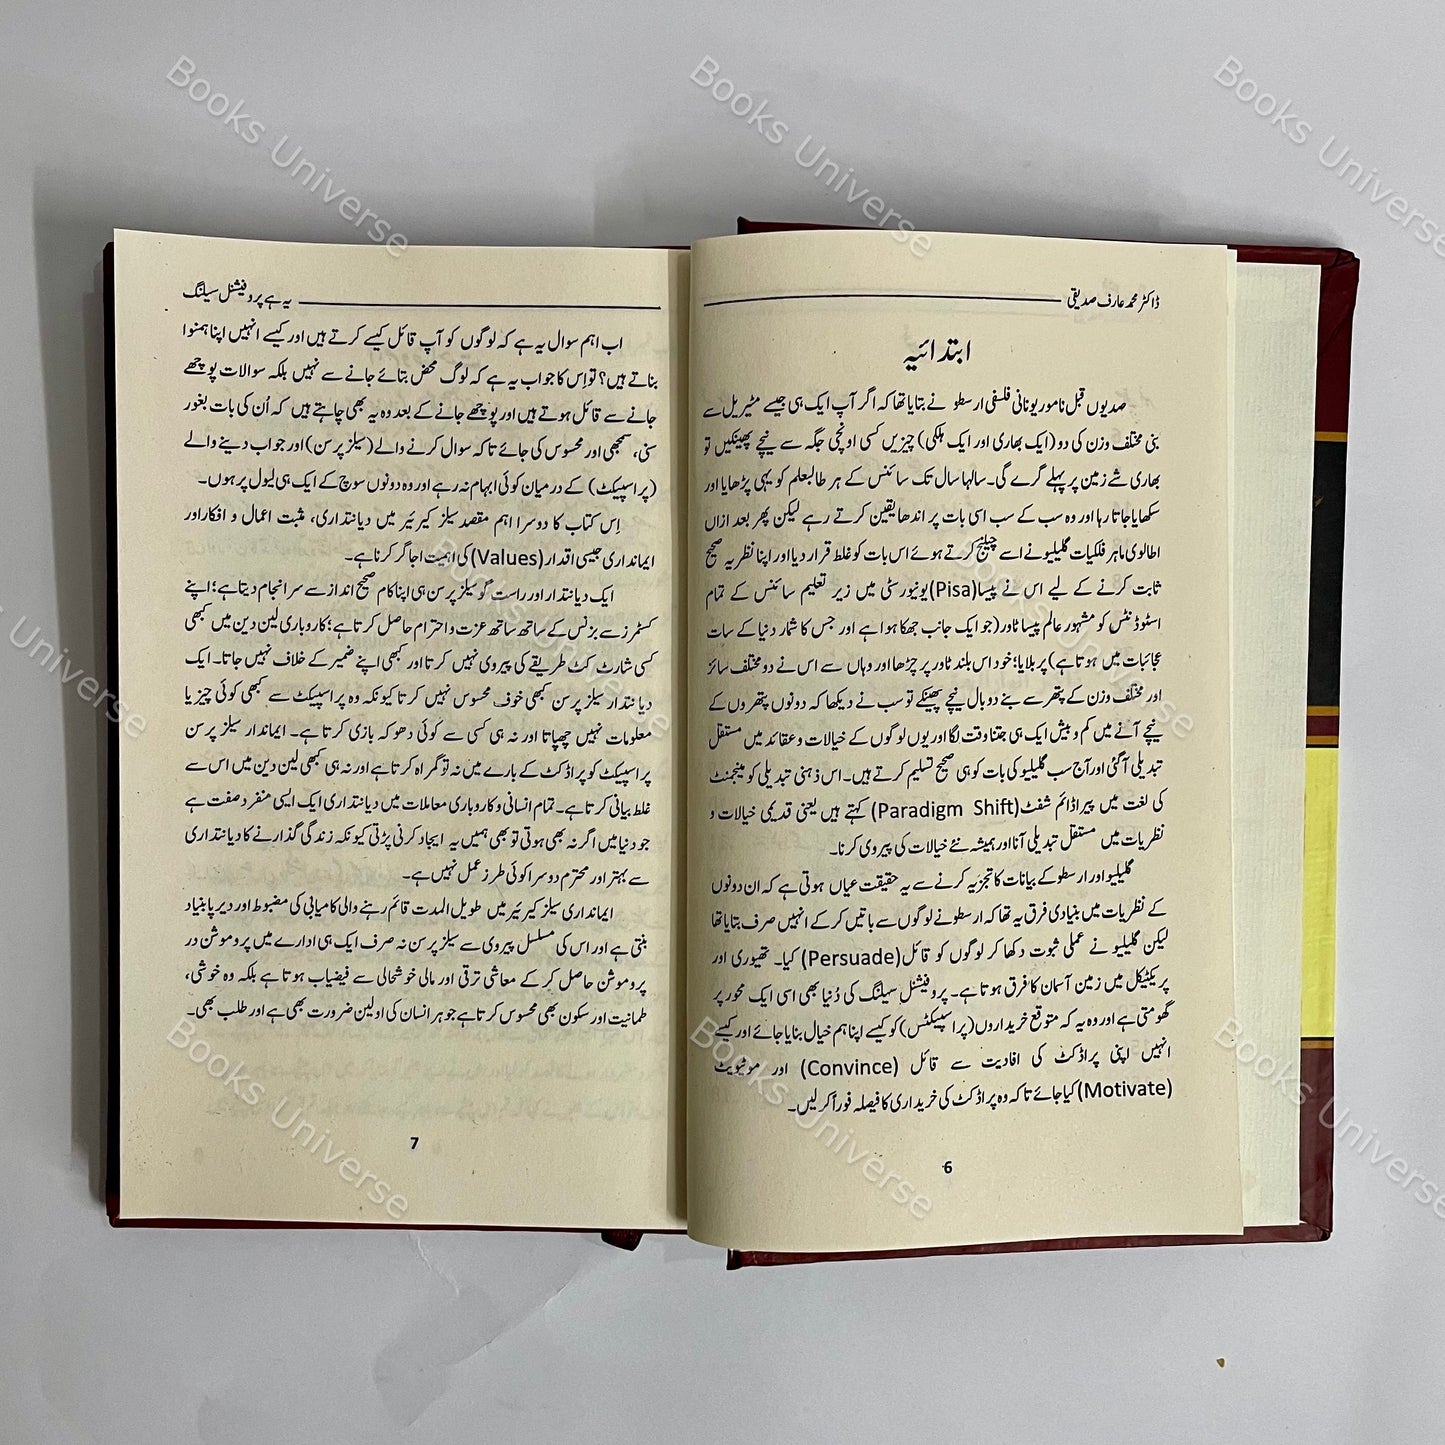 ڈاکٹر محمد عارف صدیقی
ابتدائیہ
صدیوں قبل نامور یونانی فلسفی ارسطو نے بتایا تھا کہ اگر آپ ایک ہی جیسے مٹیریل سے
بنی مختلف وزن کی دو (ایک بھاری اور ایک ہلکی) چیزیں کسی اونچی جگہ سے نیچے پھینکیں تو
بھاری شے زمین پر پہلے گرے گی۔ سالہا سال تک سائنس کے ہر طالبعلم کو یہی پڑھایا اور
سکھایا جاتا رہا اور وہ سب کے سب اسی بات پر اندھا یقین کرتے رہے لیکن پھر بعد ازاں
اطالوی ماہر فلکیات گلیلیو نے اسے چیلنج کرتے ہوئے اس بات کو غلط قرار دیا اور اپنا نظریہ صحیح
ثابت کرنے کے لیے اس نے پیسا (Pisa) یونیورسٹی میں زیر تعلیم سائنس کے تمام
اسٹوڈنٹس کو مشہور عالم پیسا ٹاور (جو ایک جانب جھکا ہوا ہے اور جس کا شمار دنیا کے سات
عجائبات میں ہوتا ہے) پر بلایا؛ خود اس بلند ٹاور پر چڑھا اور وہاں سے اس نے دو مختلف سائز
اور مختلف وزن کے پتھر سے بنے دو بال نیچے پھینکے تو سب نے دیکھا کہ دونوں پتھروں کے
نیچے آنے میں کم و بیش ایک ہی جتنا وقت لگا اور یوں لوگوں کے خیالات و عقائد میں مستقل
تبدیلی آگئی اور آج سب گلیلیو کی بات کو ہی صحیح تسلیم کرتے ہیں۔ اس ذہنی تبدیلی کو مینجمنٹ
کی لغت میں پیراڈائم شفٹ (Paradigm Shift) کہتے ہیں یعنی قدیمی خیالات و
نظریات میں مستقل تبدیلی آنا اور ہمیشہ نئے خیالات کی پیروی کرنا۔
گلیلیو اور ارسطو کے بیانات کا تجزیہ کرنے سے یہ حقیقت عیاں ہوتی ہے کہ ان دونوں
کے نظریات میں بنیادی فرق یہ تھا کہ ارسطو نے لوگوں سے باتیں کر کے انہیں صرف بتایا تھا
لیکن گلیلیو نے عملی ثبوت دکھا کر لوگوں کو قائل (Persuade) کیا۔ تھیوری اور
پریکٹیکل میں زمین آسمان کا فرق ہوتا ہے۔ پروفیشنل سیلنگ کی دُنیا بھی اسی ایک محور پر
گھومتی ہے اور وہ یہ کہ متوقع خریداروں (پراسپیکٹس) کو کیسے اپنا ہم خیال بنایا جائے اور کیسے
انہیں اپنی پراڈکٹ کی افادیت سے قائل (Convince) اور موٹیویٹ
(Motivate) کیا جائے تاکہ وہ پراڈکٹ کی خریداری کا فیصلہ فوراً کر لیں۔
6
یہ ہے پروفیشنل سیلنگ
اب اہم سوال یہ ہے کہ لوگوں کو آپ قائل کیسے کرتے ہیں اور کیسے انہیں اپنا ہمنوا
بناتے ہیں؟ تو اِس کا جواب یہ ہے کہ لوگ محض بتائے جانے سے نہیں بلکہ سوالات پوچھے
جانے سے قائل ہوتے ہیں اور پوچھے جانے کے بعد وہ یہ بھی چاہتے ہیں کہ اُن کی بات بغور
سنی، سمجھی اور محسوس کی جائے تاکہ سوال کرنے والے (سیلز پرسن) اور جواب دینے والے
(پراسپیکٹ) کے درمیان کوئی ابہام نہ رہے اور وہ دونوں سوچ کے ایک ہی لیول پر ہوں۔
اِس کتاب کا دوسرا اہم مقصد سیلز کیرئیر میں دیانتداری، مثبت اعمال و افکار اور
ایمانداری جیسی اقدار (Values) کی اہمیت اجاگر کرنا ہے۔
ایک دیانتدار اور راست گو سیلز پرسن ہی اپنا کام صحیح انداز سے سرانجام دیتا ہے؛ اپنے
کسٹمرز سے بزنس کے ساتھ ساتھ عزت و احترام حاصل کرتا ہے؛ کاروباری لین دین میں کبھی
کسی شارٹ کٹ طریقے کی پیروی نہیں کرتا اور کبھی اپنے ضمیر کے خلاف نہیں جاتا۔ ایک
دیانتدار سیلز پرسن کبھی خوف محسوس نہیں کرتا کیونکہ وہ پراسپیکٹ سے کبھی کوئی چیز یا
معلومات نہیں چھپاتا اور نہ ہی کسی سے کوئی دھوکہ بازی کرتا ہے۔ ایماندار سیلز پرسن
پراسپیکٹ کو پراڈکٹ کے بارے میں نہ تو گمراہ کرتا ہے اور نہ ہی کبھی لین دین میں اس سے
غلط بیانی کرتا ہے۔ تمام انسانی و کاروباری معاملات میں دیانتداری ایک ایسی منفرد صفت ہے
جو دنیا میں اگر نہ بھی ہوتی تو بھی ہمیں یہ ایجاد کرنی پڑتی کیونکہ زندگی گذارنے کا دیانتداری
سے بہتر اور محترم دوسرا کوئی طرز عمل نہیں ہے۔
ایمانداری سیلز کیرئیر میں طویل المدت قائم رہنے والی کامیابی کی مضبوط اور دیرپا بنیاد
بنتی ہے اور اس کی مسلسل پیروی سے سیلز پرسن نہ صرف ایک ہی ادارے میں پروموشن در
پروموشن حاصل کر کے معاشی ترقی اور مالی خوشحالی سے فیضیاب ہوتا ہے بلکہ وہ خوشی،
طمانیت اور سکون بھی محسوس کرتا ہے جو ہر انسان کی اولین ضرورت بھی ہے اور طلب بھی۔
7
Books Universe
Books Universe
Books Universe
Universe
Books Universe
Books Universe
Books Universe
Books Universe
Books Universe